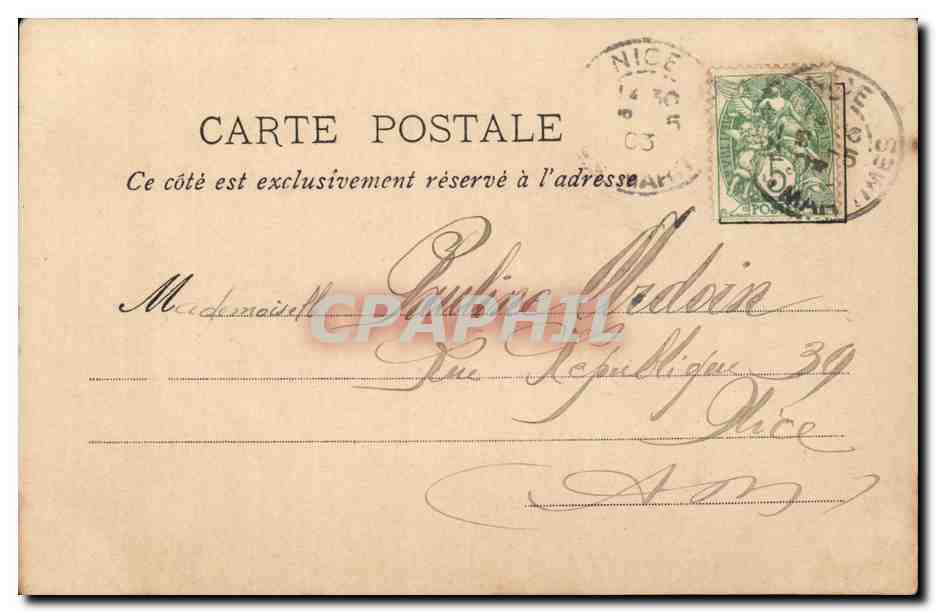 NICE
30
5
03
5c
POSTES
CARTE POSTALE
Ce côté est exclusivement réservé à l'adresse
Mademoiselle Pauline Ardoin
CPAPHIL
Rue République 39
Nice
(A M)